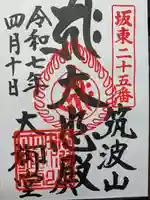 坂東二十五番
筑波山
大悲殿
大御堂
令和七年
四月十日